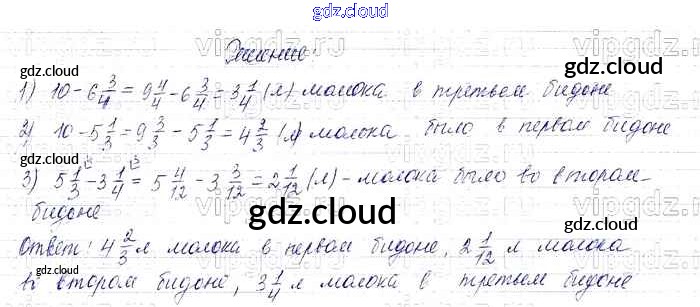 gdz.cloud
Решение
gdz.cloud
gdz.cloud
1) 10 - 6 3/4 = 9 4/4 - 6 3/4 = 3 1/4 (л) молока в третьем бидоне
2) 10 - 5 1/3 = 9 3/3 - 5 1/3 = 4 2/3 (л) молока было в первом бидоне
gdz.cloud
3) 5 1/3 - 3 1/4 = 5 4/12 - 3 3/12 = 2 1/12 (л) - молока было во втором
бидоне
gdz.cloud
Ответ: 4 2/3 л молока в первом бидоне, 2 1/12 л молока
во втором бидоне, 3 1/4 л молока в третьем бидоне
gdz.cloud
gdz.cloud
gdz.cloud